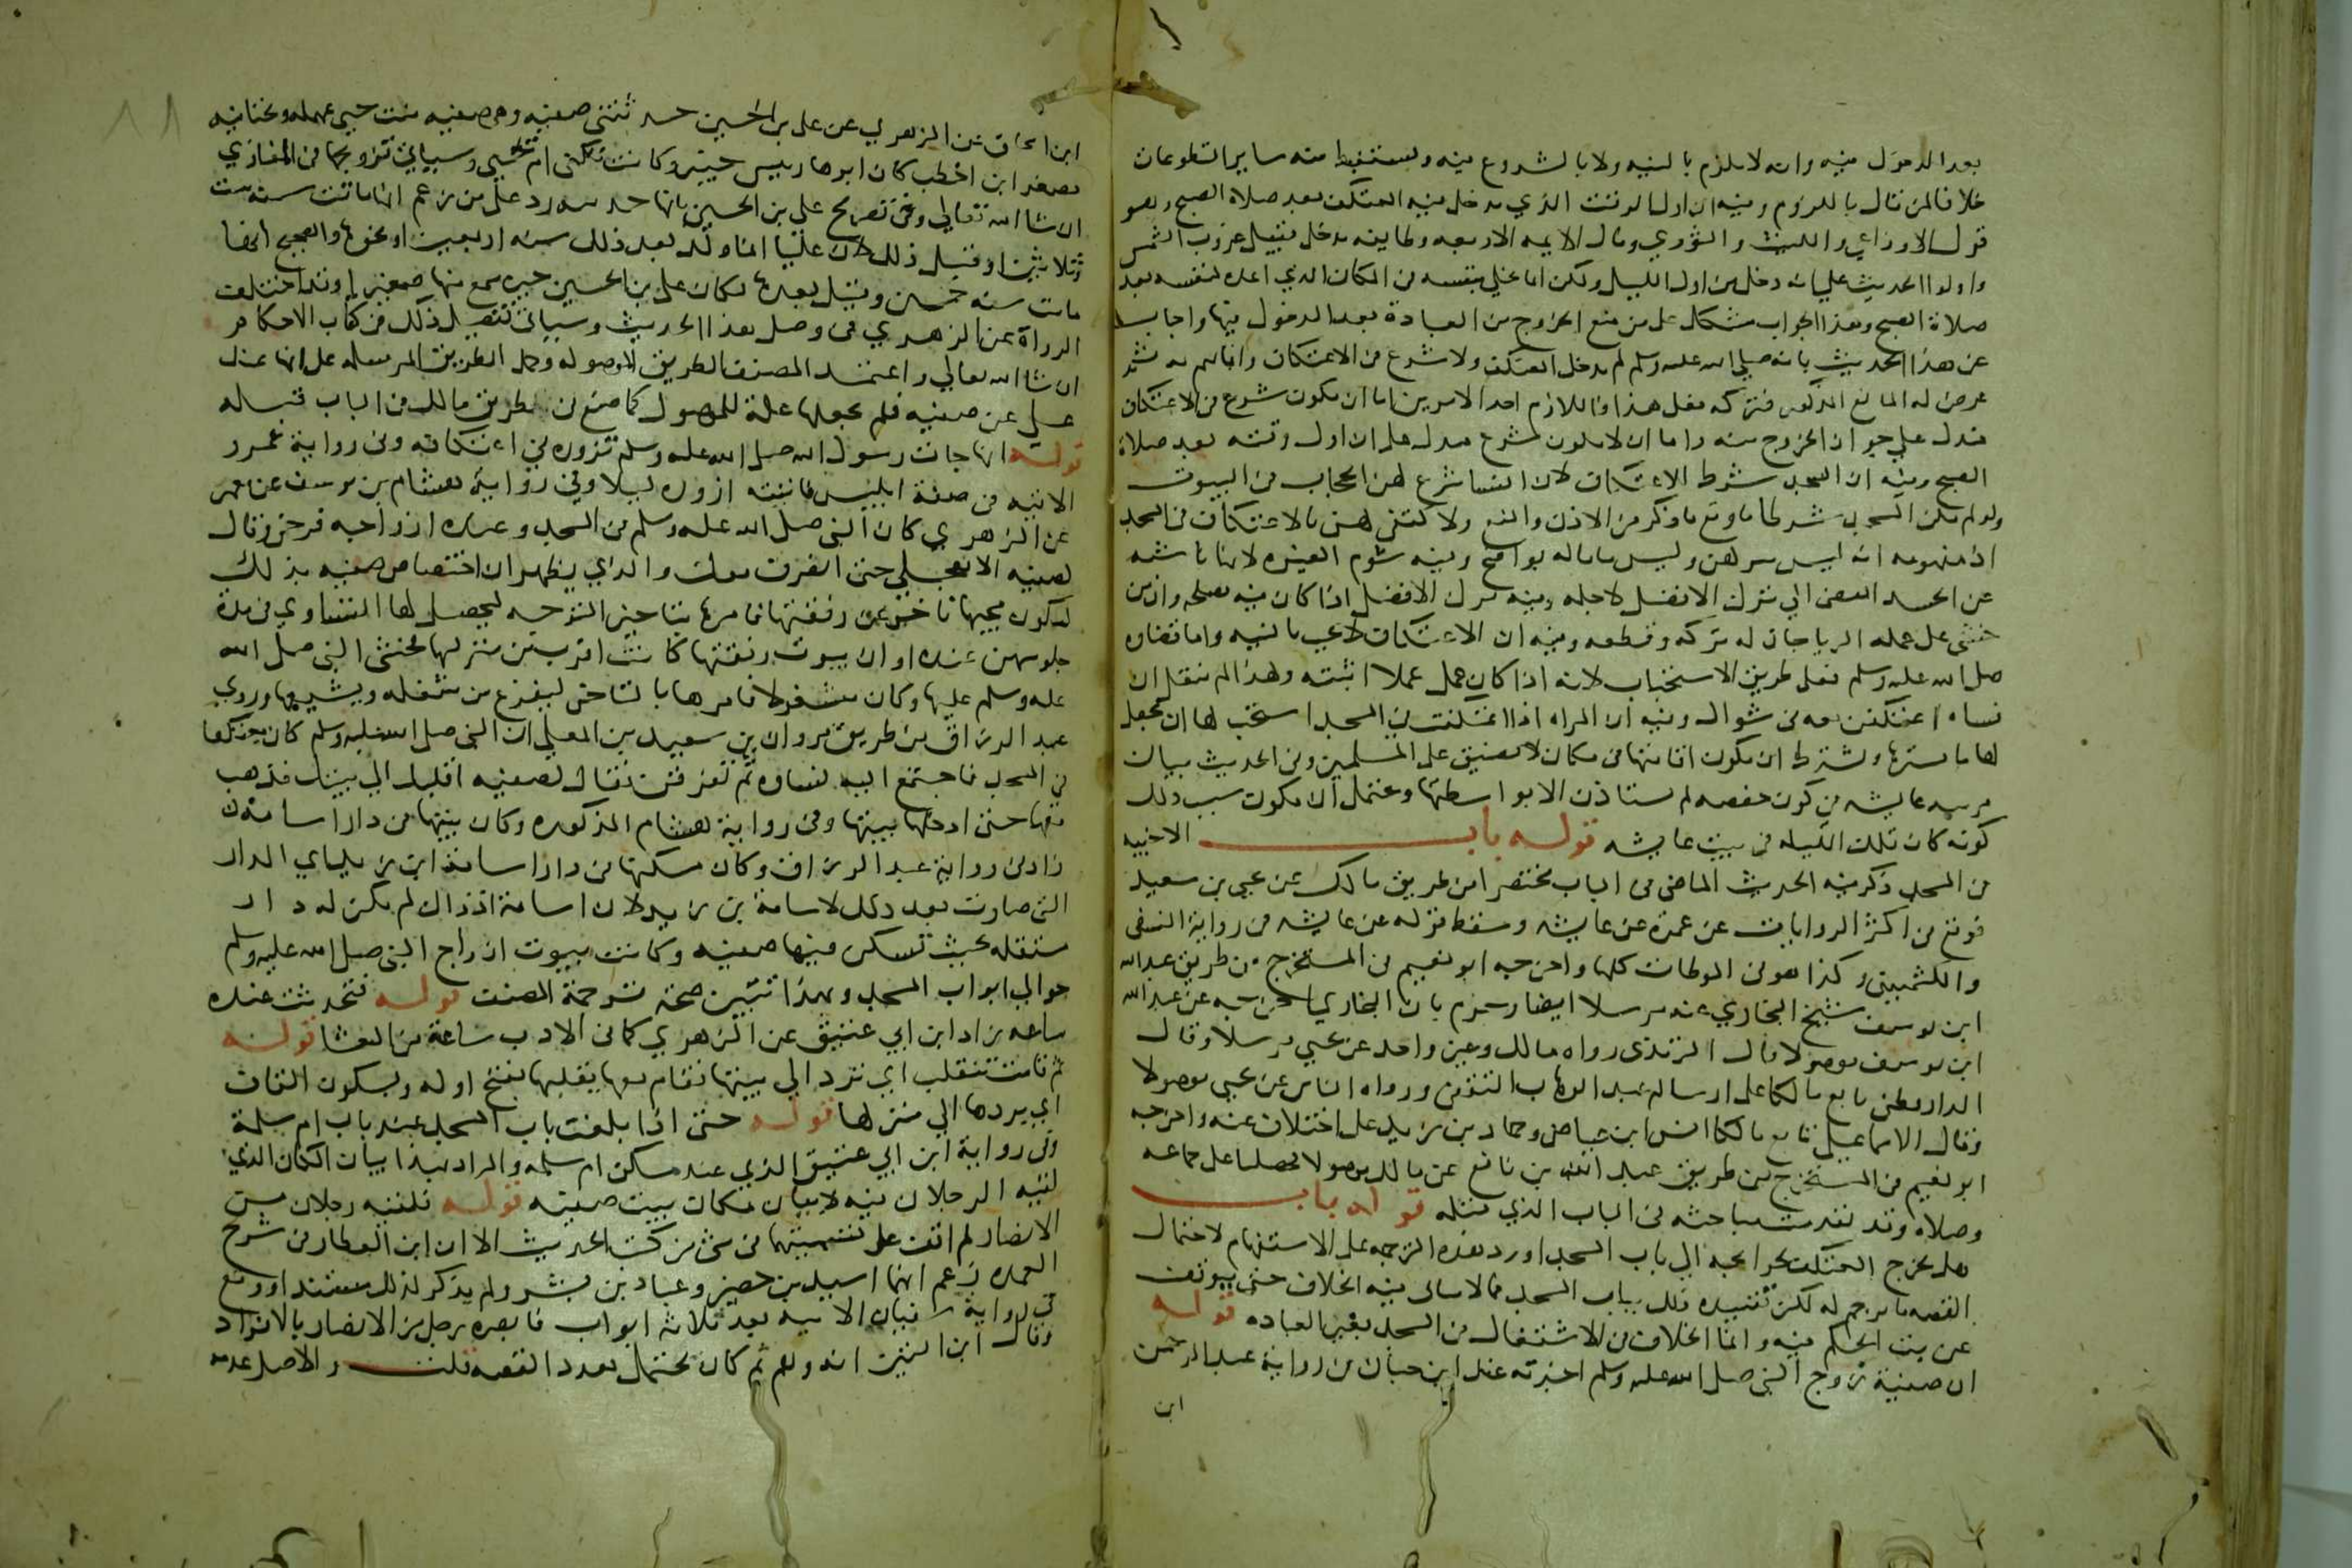 بعد الدخول فيه وانه لا يلزم بالنيه ولا بالشروع فيه ويستنبط منه ساير التطوعات
خلافا لمن قال باللزوم وفيه ان اول الوقت الذي يدخل فيه المعتكف بعد صلاة الصبح وهو
قول الاوزاعي والليث والثوري وقال الايمه الاربعه وطايفه يدخل قبيل غروب الشمس
واولوا الحديث على انه دخل من اول الليل ولكن انما تخلي بنفسه في المكان الذي اعده لنفسه بعد
صلاة الصبح وهذا الجواب يشكل على من منع الخروج من العبادة بعد الدخول فيها واجاب
عن هذا الحديث بانه صلى الله عليه وسلم لم يدخل المعتكف ولا شرع في الاعتكاف وانما هم به ثم
عرض له المانع المذكور فتركه فعلى هذا فاللازم احد الامرين اما ان يكون شرع في الاعتكاف
فدل على جواز الخروج منه واما ان لا يكون شرع فيدل على ان اول وقته بعد صلاة
الصبح وفيه ان المسجد شرط الاعتكاف لان النسا شرع لهن الحجاب في البيوت
ولو لم يكن المسجد شرطا ما وقع ما ذكر من الاذن والمنع ولاكتفى لهن بالاعتكاف في المسجد
اذ مفهومه انه ليس ببر لهن وليس ما قاله بواضح وفيه شوم الغيره لانها ناشيه
عن الحسد المفضي الى ترك الافضل لاجله وفيه ترك الافضل اذا كان فيه مصلحه وان من
خشى على عمله الريا جاز له تركه وقطعه وفيه ان الاعتكاف لا يجب بالنيه واما قضاوه
صلى الله عليه وسلم فعلى طريق الاستحباب لانه كان اذا عمل عملا اثبته ولهذا لم ينقل ان
نساه اعتكفن معه في شوال وفيه ان المراه اذا اعتكفت في المسجد استحب لها ان تجعل
لها ما يسترها ويشترط ان تكون اقامتها في مكان لا يضيق على المسلمين وفي الحديث بيان
مرتبه عايشه في كون حفصه لم تستاذن الا بواسطتها ويحتمل ان يكون سبب ذلك
كونه كان تلك الليله في بيت عايشه قوله باب الاخبيه
في المسجد ذكر فيه الحديث الماضي في الباب مختصرا من طريق مالك عن يحيى بن سعيد
فوقع في اكثر الروايات عن عمرة عن عايشه وسقط قوله عن عايشه في رواية النسفي
والكشميهني وكذا هو في الموطات كلها واخرجه ابو نعيم في المستخرج من طريق عبد الله
ابن يوسف شيخ البخاري عنه مرسلا ايضا وجزم بان البخاري اخرجه عن عبد الله
ابن يوسف موصولا قال الترمذي رواه مالك وغير واحد عن يحيى مرسلا وقال
الدارقطني تابع مالكا على ارساله عبد الوهاب الثقفي ورواه الناس عن يحيى موصولا
وقال الاسماعيلي تابع مالكا انس ابن عياض وحماد بن زيد على اختلاف عنه واخرجه
ابو نعيم في المستخرج من طريق عبد الله بن نافع عن مالك موصولا فحصلنا على جماعه
وصلوه وقد تقدمت مباحثه في الباب الذي قبله قوله باب
هل يخرج المعتكف لحوايجه الى باب المسجد اورد هذه الترجمه على الاستفهام لاحتمال
القصه ما ترجم له لكن تقييده ذلك بباب المسجد مما لا يتاتى فيه الخلاف حتى يتوقف
عن بت الحكم فيه وانما الخلاف في الاشتغال في المسجد بغير العباده قوله
ان صفية زوج النبي صلى الله عليه وسلم اخبرته عند ابن حبان من رواية عبد الرحمن
ابن
ابن اسحاق عن الزهري عن علي بن الحسين حدثتني صفيه وهي صفيه بنت حيي بمهمله وتحتانيه
مصغر ابن اخطب كان ابوها رييس خيبر وكانت تكنى ام يحيى وسياتي تزويجها في المغازي
ان شا الله تعالى وفي تصريح علي بن الحسين بانها حدثته رد على من زعم انها ماتت سنة ست
وثلاثين او قبل ذلك لان عليا انما ولد بعد ذلك سنة اربعين او نحوها والصحيح انها
ماتت سنة خمسين وقيل بعدها وكان علي بن الحسين حين سمع منها صغيرا وقد اختلفت
الرواة عن الزهري في وصل هذا الحديث وسياتي تفصيل ذلك في كتاب الاحكام
ان شا الله تعالى واعتمد المصنف الطريق الموصوله وحمل الطريق المرسله على انها عند
علي عن صفيه فلم يجعلها علة للموصول كما صنع في طريق مالك في الباب قبله
قوله انها جات رسول الله صلى الله عليه وسلم تزوره في اعتكافه وفي رواية معمر
الاتيه في صفة ابليس فاتيته ازوره ليلا وفي رواية هشام بن يوسف عن معمر
عن الزهري كان النبي صلى الله عليه وسلم في المسجد وعنده ازواجه فرحن وقال
لصفيه لا تعجلي حتى انصرف معك والذي يظهر ان اختصاص صفيه بذلك
لكون مجيها تاخر عن رفقتها فامرها بتاخير التوجه ليحصل لها التساوي في مدة
جلوسهن عنده او ان بيوت رفقتها كانت اقرب من منزلها فخشي النبي صلى الله
عليه وسلم عليها وكان مشغولا فامرها بالتاخر ليفرغ من شغله ويشيعها وروى
عبد الرزاق من طريق مروان بن سعيد بن المعلى ان النبي صلى الله عليه وسلم كان معتكفا
في المسجد فاجتمع اليه نساوه ثم تفرقن فقال لصفيه اقلبك الى بيتك فذهب
معها حتى ادخلها بيتها وفي رواية هشام المذكوره وكان بيتها في دار اسامة
زاد في رواية عبد الرزاق وكان مسكنها في دار اسامة ابن زيد اي الدار
التي صارت بعد ذلك لاسامة بن زيد لان اسامة اذ ذاك لم يكن له دار
مستقله بحيث تسكن فيها صفيه وكانت بيوت ازواج النبي صلى الله عليه وسلم
حوالي ابواب المسجد وبهذا تبين صحة ترجمة المصنف قوله فتحدثت عنده
ساعه زاد ابن ابي عتيق عن الزهري كما في الادب ساعة من العشا قوله
ثم قامت تنقلب اي ترد الى بيتها فقام معها يقلبها بفتح اوله وسكون القاف
اي يردها الى منزلها قوله حتى اذا بلغت باب المسجد عند باب ام سلمة
وفي رواية ابن ابي عتيق الذي عند مسكن ام سلمه والمراد بهذا بيان المكان الذي
لقيه الرجلان فيه لا بيان مكان بيت صفيه قوله فلقيه رجلان من
الانصار لم اقف على تسميتهما في شي من كتب الحديث الا ان ابن العطار في شرح
العمده زعم انهما اسيد بن حضير وعباد بن بشر ولم يذكر لذلك مستندا ووقع
في رواية سفيان الاتيه بعد ثلاثة ابواب فابصره رجل من الانصار بالافراد
وقال ابن التين انه وهم ثم قال يحتمل تعدد القصه قلت والاصل عدمه